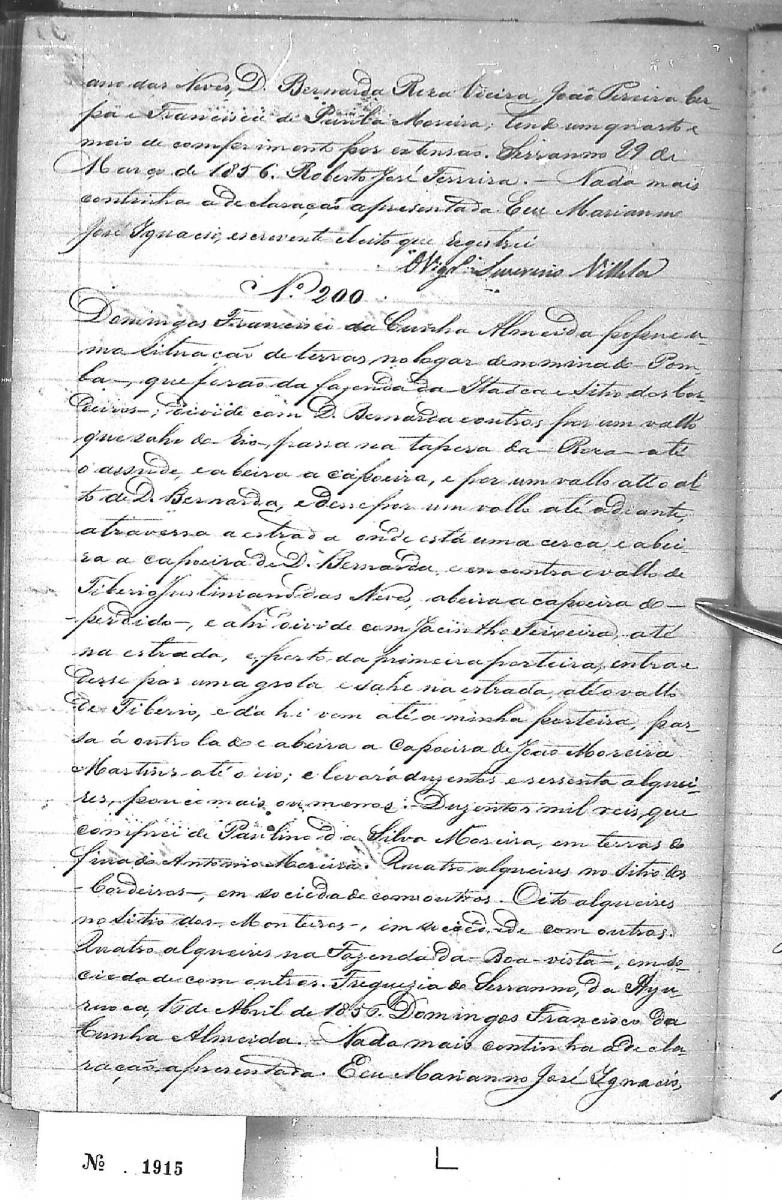 ano das Neves, D. Bernarda Roza Vieira, João Pereira Cer-
pa e Francisco de Paula Moreira; tendo um quarto e
meio de comprimento por extensão. Serranno 29 de
Março de 1856. Roberto José Ferreira. — Nada mais
continha a declaração apresentada. Eu Marianno
José Ignacio, escrevente eleito que registrei
O Vigr.º Severino Villela
N.º 200
Domingos Francisco da Cunha Almeida possue u-
ma situação de terras, no logar denominado - Pom-
ba -, que forão da fazenda da Itaóca e sitio dos Cor-
deiros -; divide com D. Bernarda e outros por um vallo
que sahe do rio, passa na tapera da - Roza - até
o assude, e abeira a capoeira, e por um vallo até o al-
to de D. Bernarda, e desse por um vallo até adiante,
atravessa a estrada onde está uma cerca e abei-
ra a capoeira de D. Bernarda, e encontra o vallo de
Tiberio Justiniano das Neves, abeira a capoeira do -
- perdido -, e ahi divide com Jacintho Teixeira, até
na estrada, e perto da primeira porteira, entra e
desse por uma grota e sahe na estrada, até o vallo
de Tiberio, e dahi vem até a minha porteira, pas-
sa á outro lado e abeira a capoeira de João Moreira
Martins até o rio; e levará duzentos e sessenta alquei-
res, pouco mais ou menos: Duzentos mil reis, que
comprei de Paulino da Silva Moreira, em terras do
finado Antonio Moreira. Quatro alqueires no sitio dos
- Cordeiros -, em sociedade com outros. Oito alqueires
no sitio dos - Monteiros -, em sociedade com outros.
Quatro alqueires na Fazenda da - Boa-vista -, em so-
ciedade com outros. Freguezia do Serranno, da Ayu-
ruoca, 16 de Abril de 1856. Domingos Francisco da
Cunha Almeida. - Nada mais continha a decla-
ração apresentada. Eu Marianno José Ignacio,
Nº . 1915